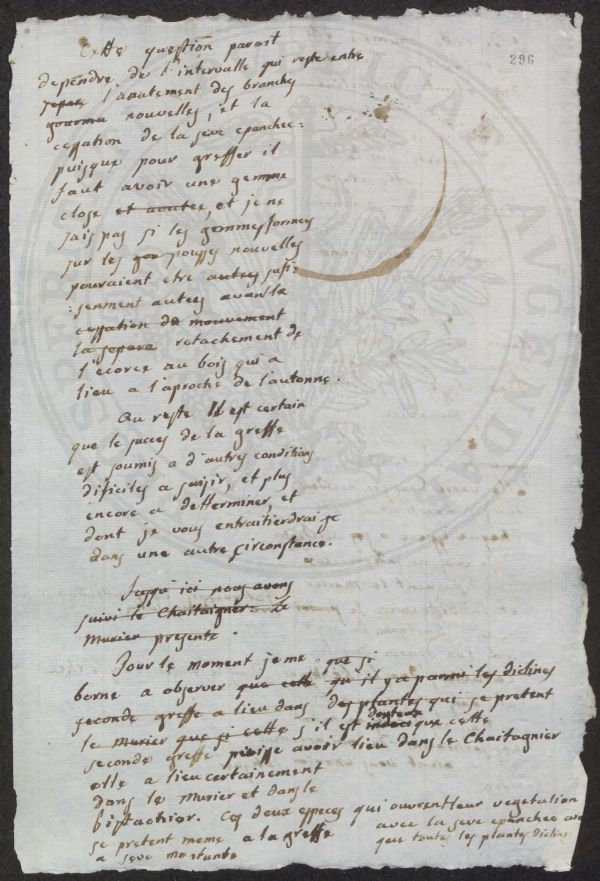 296
Cette question paroit
dependre de l'intervalle qui reste entre
l'aoutement des branches
gourma nouvelles, et la
cessation de la seve epanchee:
puisque pour greffer il
faut avoir une gemme
close et aoutee, et je ne
sais pas si les gemmes formees
sur les gou pousses nouvelles
pouraient etre aoutees sufi
:senment autees avant la
cessation de mouvement
la separa retachement de
l'ecorce au bois qui a
lieu a l'aproche de l'autonne.
Au reste Il est certain
que le succes de la greffe
est soumis a d'autres conditions
dificiles a saisir, et plus
encore a detterminer, et
dont je vous entraitierdrai je
dans une autre circonstance.
Jusqu'ici nous avons
suivi le Chaitaignier. Le
Murier presente.
Pour le moment je me que si
borne a observer que cette qu'il y a parmi les diclines
seconde greffe a lieu dans des plantes qui se pretent
le Murier que si cette s'il est douteux que cette
seconde greffe puisse avoir lieu dans le Chaitagnier
elle a lieu certainement
dans le Murier et dans le
Pistachier. Ces deux especes qui ouvrent leur vegetation
se pretent meme a la greffe avec la seve epanchee
a seve montante que toutes les plantes diclines